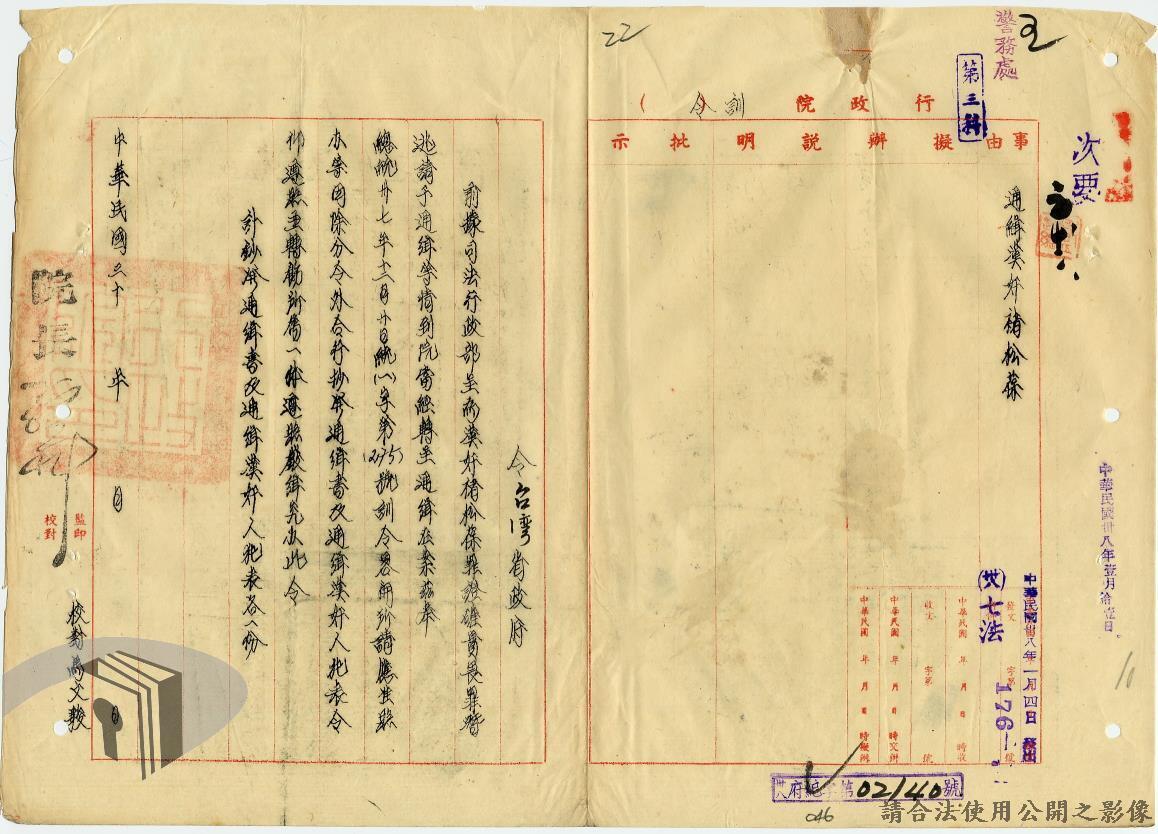 警務處
第三科
22
行政院(訓令)
事由擬辦說明批示
次要
通緝漢奸褚松葆
中華民國卅八年壹月拾壹日
中華民國卅八年一月四日發出
發文 字第 號
(卅)七法
176
中華民國 年 月 日 時收
收文 字第 號
中華民國 年 月 日 時交辦
中華民國 年 月 日 時擬辦
卅八府總字第02140號
046
令台灣省政府
前據司法行政部呈為漢奸褚松葆罪證確實畏罪潛
逃請予通緝等情到院當經轉呈通緝在案茲奉
總統卅七年十二月廿日統(一)字第(275)號訓令畧開所請應准照
办等因除分令外合行抄發通緝書及通緝漢奸人犯表令
仰遵照並轉飭所屬一体遵照嚴緝究办此令
計鈔發通緝書及通緝漢奸人犯表各一份
中華民國三十 年 月 日
院長孫科
監印
校對
校對馮文駿
請合法使用公開之影像